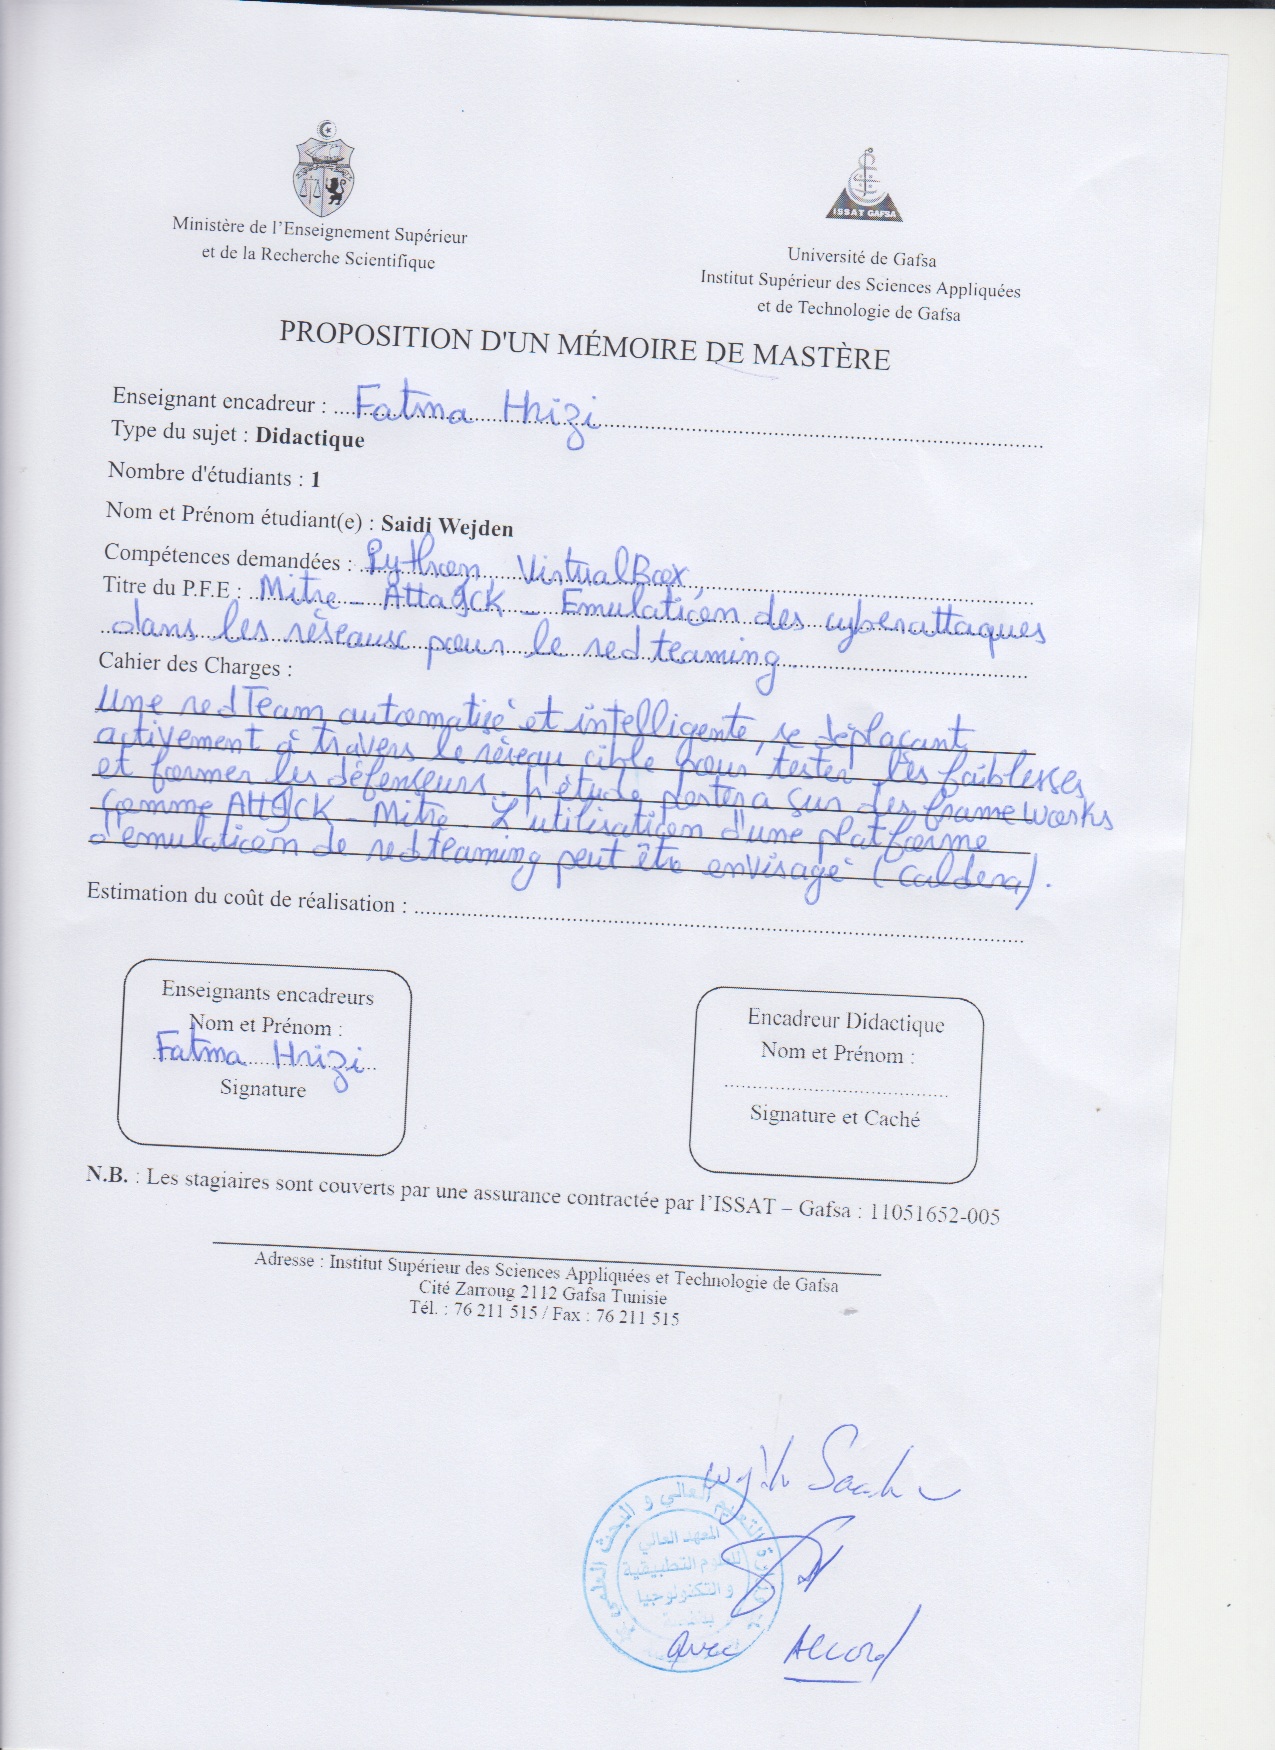 Ministère de l'Enseignement Supérieur
et de la Recherche Scientifique
ISSAT GAFSA
Université de Gafsa
Institut Supérieur des Sciences Appliquées
et de Technologie de Gafsa
PROPOSITION D'UN MÉMOIRE DE MASTÈRE
Enseignant encadreur : Fatma Hrizi
Type du sujet : Didactique
Nombre d'étudiants : 1
Nom et Prénom étudiant(e) : Saidi Wejden
Compétences demandées : Python, VirtualBox,
Titre du P.F.E : Mitre - Att&CK - Emulation des cyberattaques
dans les réseaux pour le red teaming
Cahier des Charges :
Une redTeam automatisé et intelligente, se déplaçant
activement à travers le réseau cible pour tester les faiblesses
et former les défenseurs. L'étude portera sur des frameworks
comme Att&CK - Mitre. L'utilisation d'une platforme
d'emulation de redteaming peut être envisagé (Caldera).
Estimation du coût de réalisation :
Enseignants encadreurs
Nom et Prénom :
Fatma Hrizi
Signature
Encadreur Didactique
Nom et Prénom :
Signature et Caché
N.B. : Les stagiaires sont couverts par une assurance contractée par l'ISSAT – Gafsa : 11051652-005
Adresse : Institut Supérieur des Sciences Appliquées et Technologie de Gafsa
Cité Zarroug 2112 Gafsa Tunisie
Tél. : 76 211 515 / Fax : 76 211 515
وزارة التعليم العالي و البحث العلمي
المعهد العالي
للعلوم التطبيقية
و التكنولوجيا
بقفصة
avec Accord